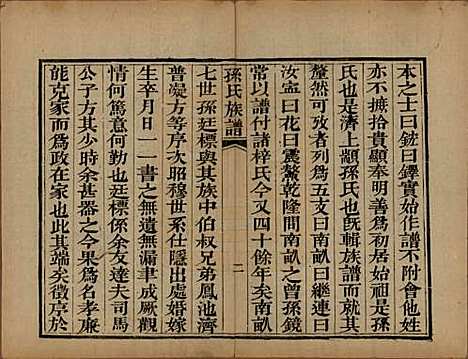 本之士曰銊曰鐸實始作譜不附會他姓
亦不摭拾貴顯奉明善為初居始祖是孫
氏也是濟上顓孫氏也既輯族譜而南畝
釐然可考者列為五支曰南畝曰繼連曰
汝寧曰花曰鼇乾隆間南畝之曾孫鏡
常以譜付諸梓氏今又四十餘年矣南畝
孫氏族譜
二
七世孫廷標與其族中伯叔兄弟鳳池濟
普凝方等序次昭穆世系仕隱出處婚嫁
生卒月日一一書之無遺無漏書成厥觀
情何篤意何勤也廷標係余友達夫司馬
公子方其少時余甚器之今果為名孝廉
能克家而為政在家也此其端矣徵序於